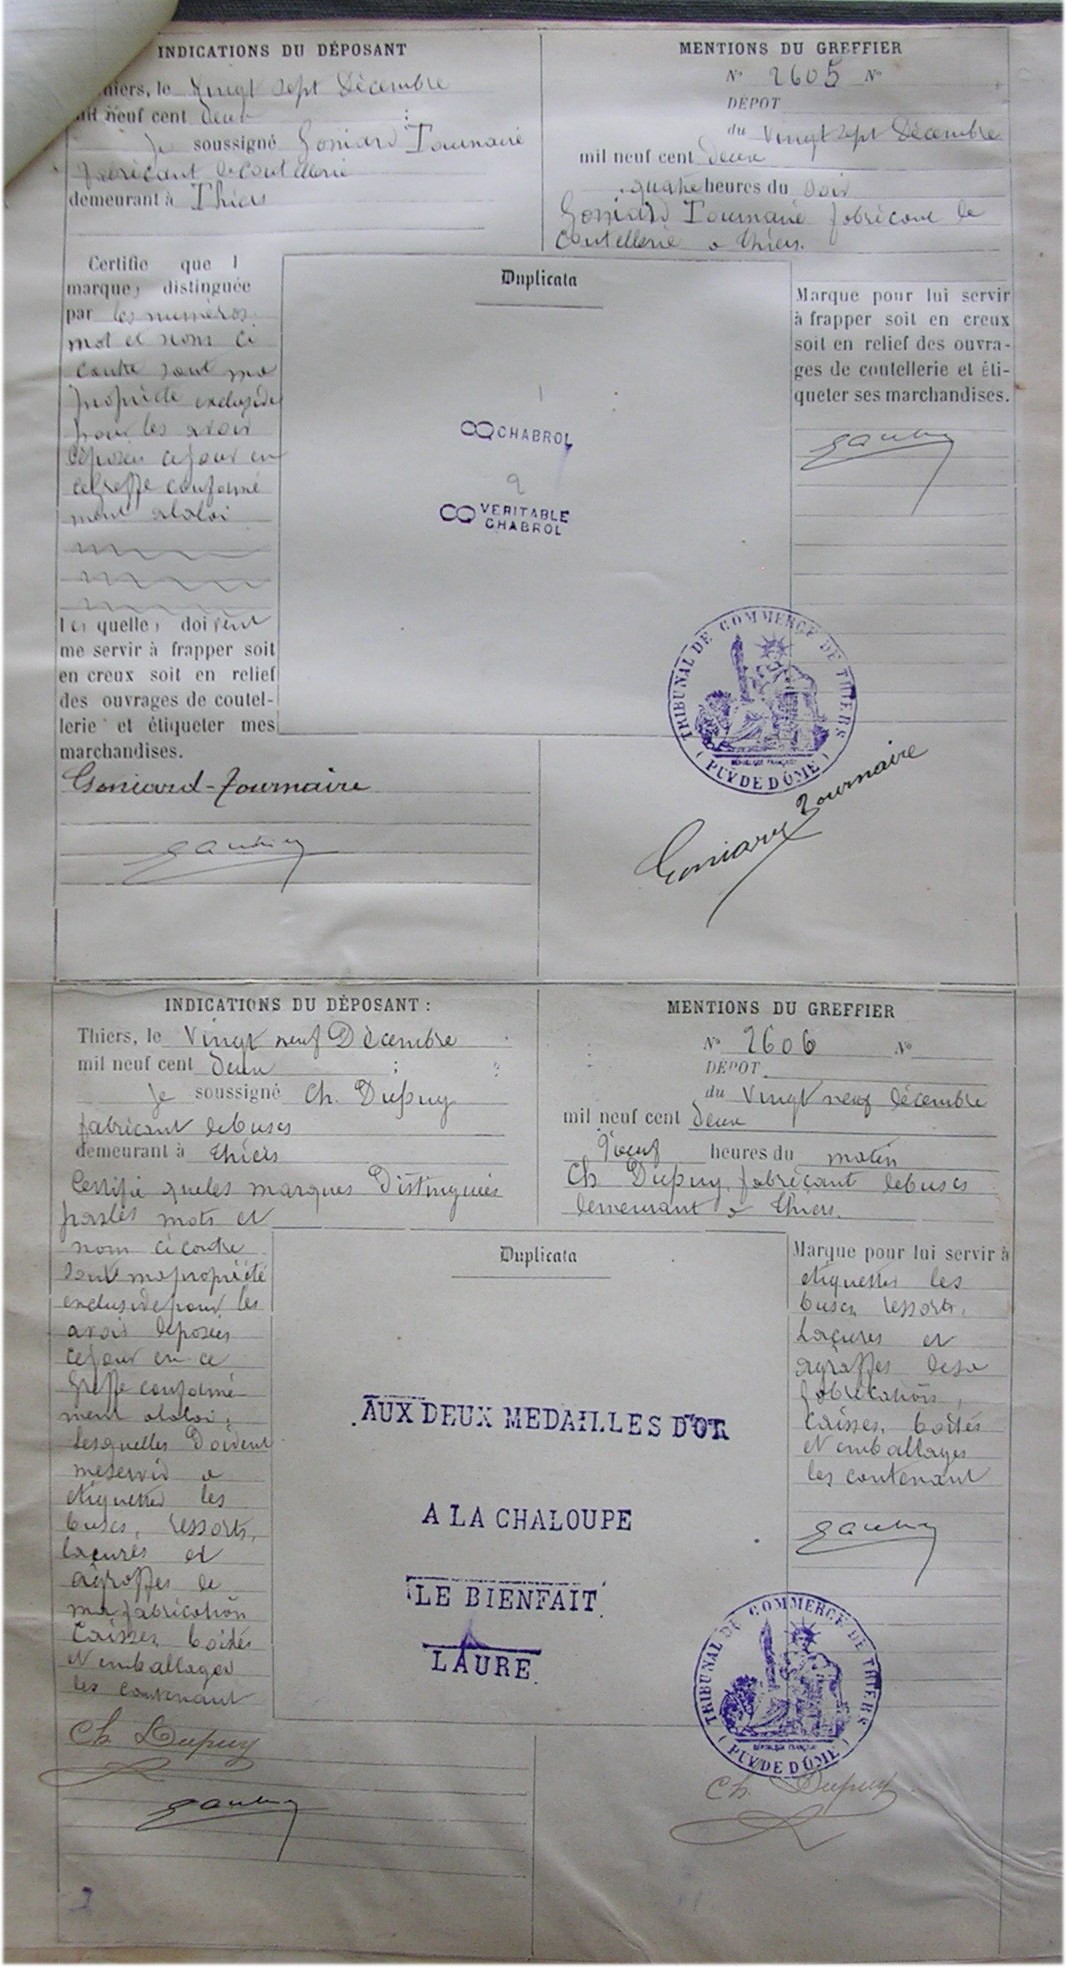 INDICATIONS DU DÉPOSANT
Thiers, le Vingt sept Décembre
mil neuf cent deux
Je soussigné Goniard Tournaire
fabricant de coutellerie
demeurant à Thiers
MENTIONS DU GREFFIER
N° 2605 N°
DÉPOT
du Vingt sept Décembre
mil neuf cent deux
quatre heures du soir
Goniard Tournaire fabricant de
coutellerie a Thiers.
Certifie que l
marque, distinguée
par les numéros
mot et noms ci
contre sont ma
propriété exclusive
pour les avoir
déposés ce jour en
ce greffe conformé
ment a la loi
les quelles doivent
me servir à frapper soit
en creux soit en relief
des ouvrages de coutel-
lerie et étiqueter mes
marchandises.
Goniard-Tournaire
Duplicata
1
CHABROL
2
VERITABLE
CHABROL
Marque pour lui servir
à frapper soit en creux
soit en relief des ouvra-
ges de coutellerie et éti-
queter ses marchandises.
TRIBUNAL DE COMMERCE DE THIERS
RÉPUBLIQUE FRANÇAISE
(PUY DE DÔME)
Goniard Tournaire
INDICATIONS DU DÉPOSANT :
Thiers, le Vingt neuf Décembre
mil neuf cent deux
Je soussigné Ch. Dupuy
fabricant de buscs
demeurant à Thiers
Certifie que les marques Distinguées
par les mots et
nom ci contre
sont ma propriété
exclusive pour les
avoir déposées
ce jour en ce
Greffe conformé-
ment a la loi,
Lesquelles Doivent
me servir a
etiqueter les
buscs, ressorts,
laçures et
agraffes de
ma fabrication
Caisses, boites
et emballages
les contenant
Ch. Dupuy
MENTIONS DU GREFFIER
N° 2606 N°
DÉPOT
du Vingt neuf décembre
mil neuf cent deux
Neuf heures du matin
Ch Dupuy, fabricant de buscs
demeurant a Thiers.
Duplicata
AUX DEUX MEDAILLES D'OR
A LA CHALOUPE
LE BIENFAIT
LAURE
Marque pour lui servir à
etiqueter les
buscs, ressorts,
Laçures et
agraffes de sa
fabrication,
Caisses, boites
et emballages
les contenant
TRIBUNAL DE COMMERCE DE THIERS
RÉPUBLIQUE FRANÇAISE
(PUY DE DÔME)
Ch. Dupuy